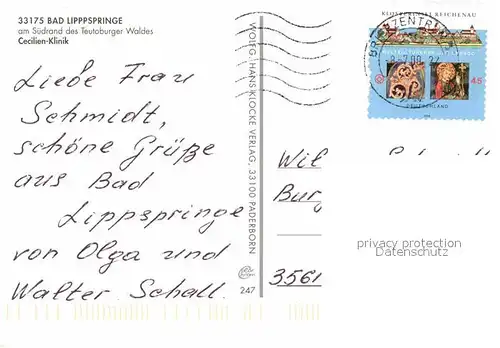 33175 BAD LIPPPSPRINGE
am Südrand des Teutoburger Waldes
Cecilien-Klinik
Liebe Frau
Schmidt,
schöne Grüße
aus Bad
Lippspringe
von Olga und
Walter Schall.
WOLFG. HANS KLOCKE VERLAG, 33100 PADERBORN
247
KLOSTERINSEL REICHENAU
BRIEFZENTRUM
45
DEUTSCHLAND
Wil
Bur
3561
privacy protection
Datenschutz